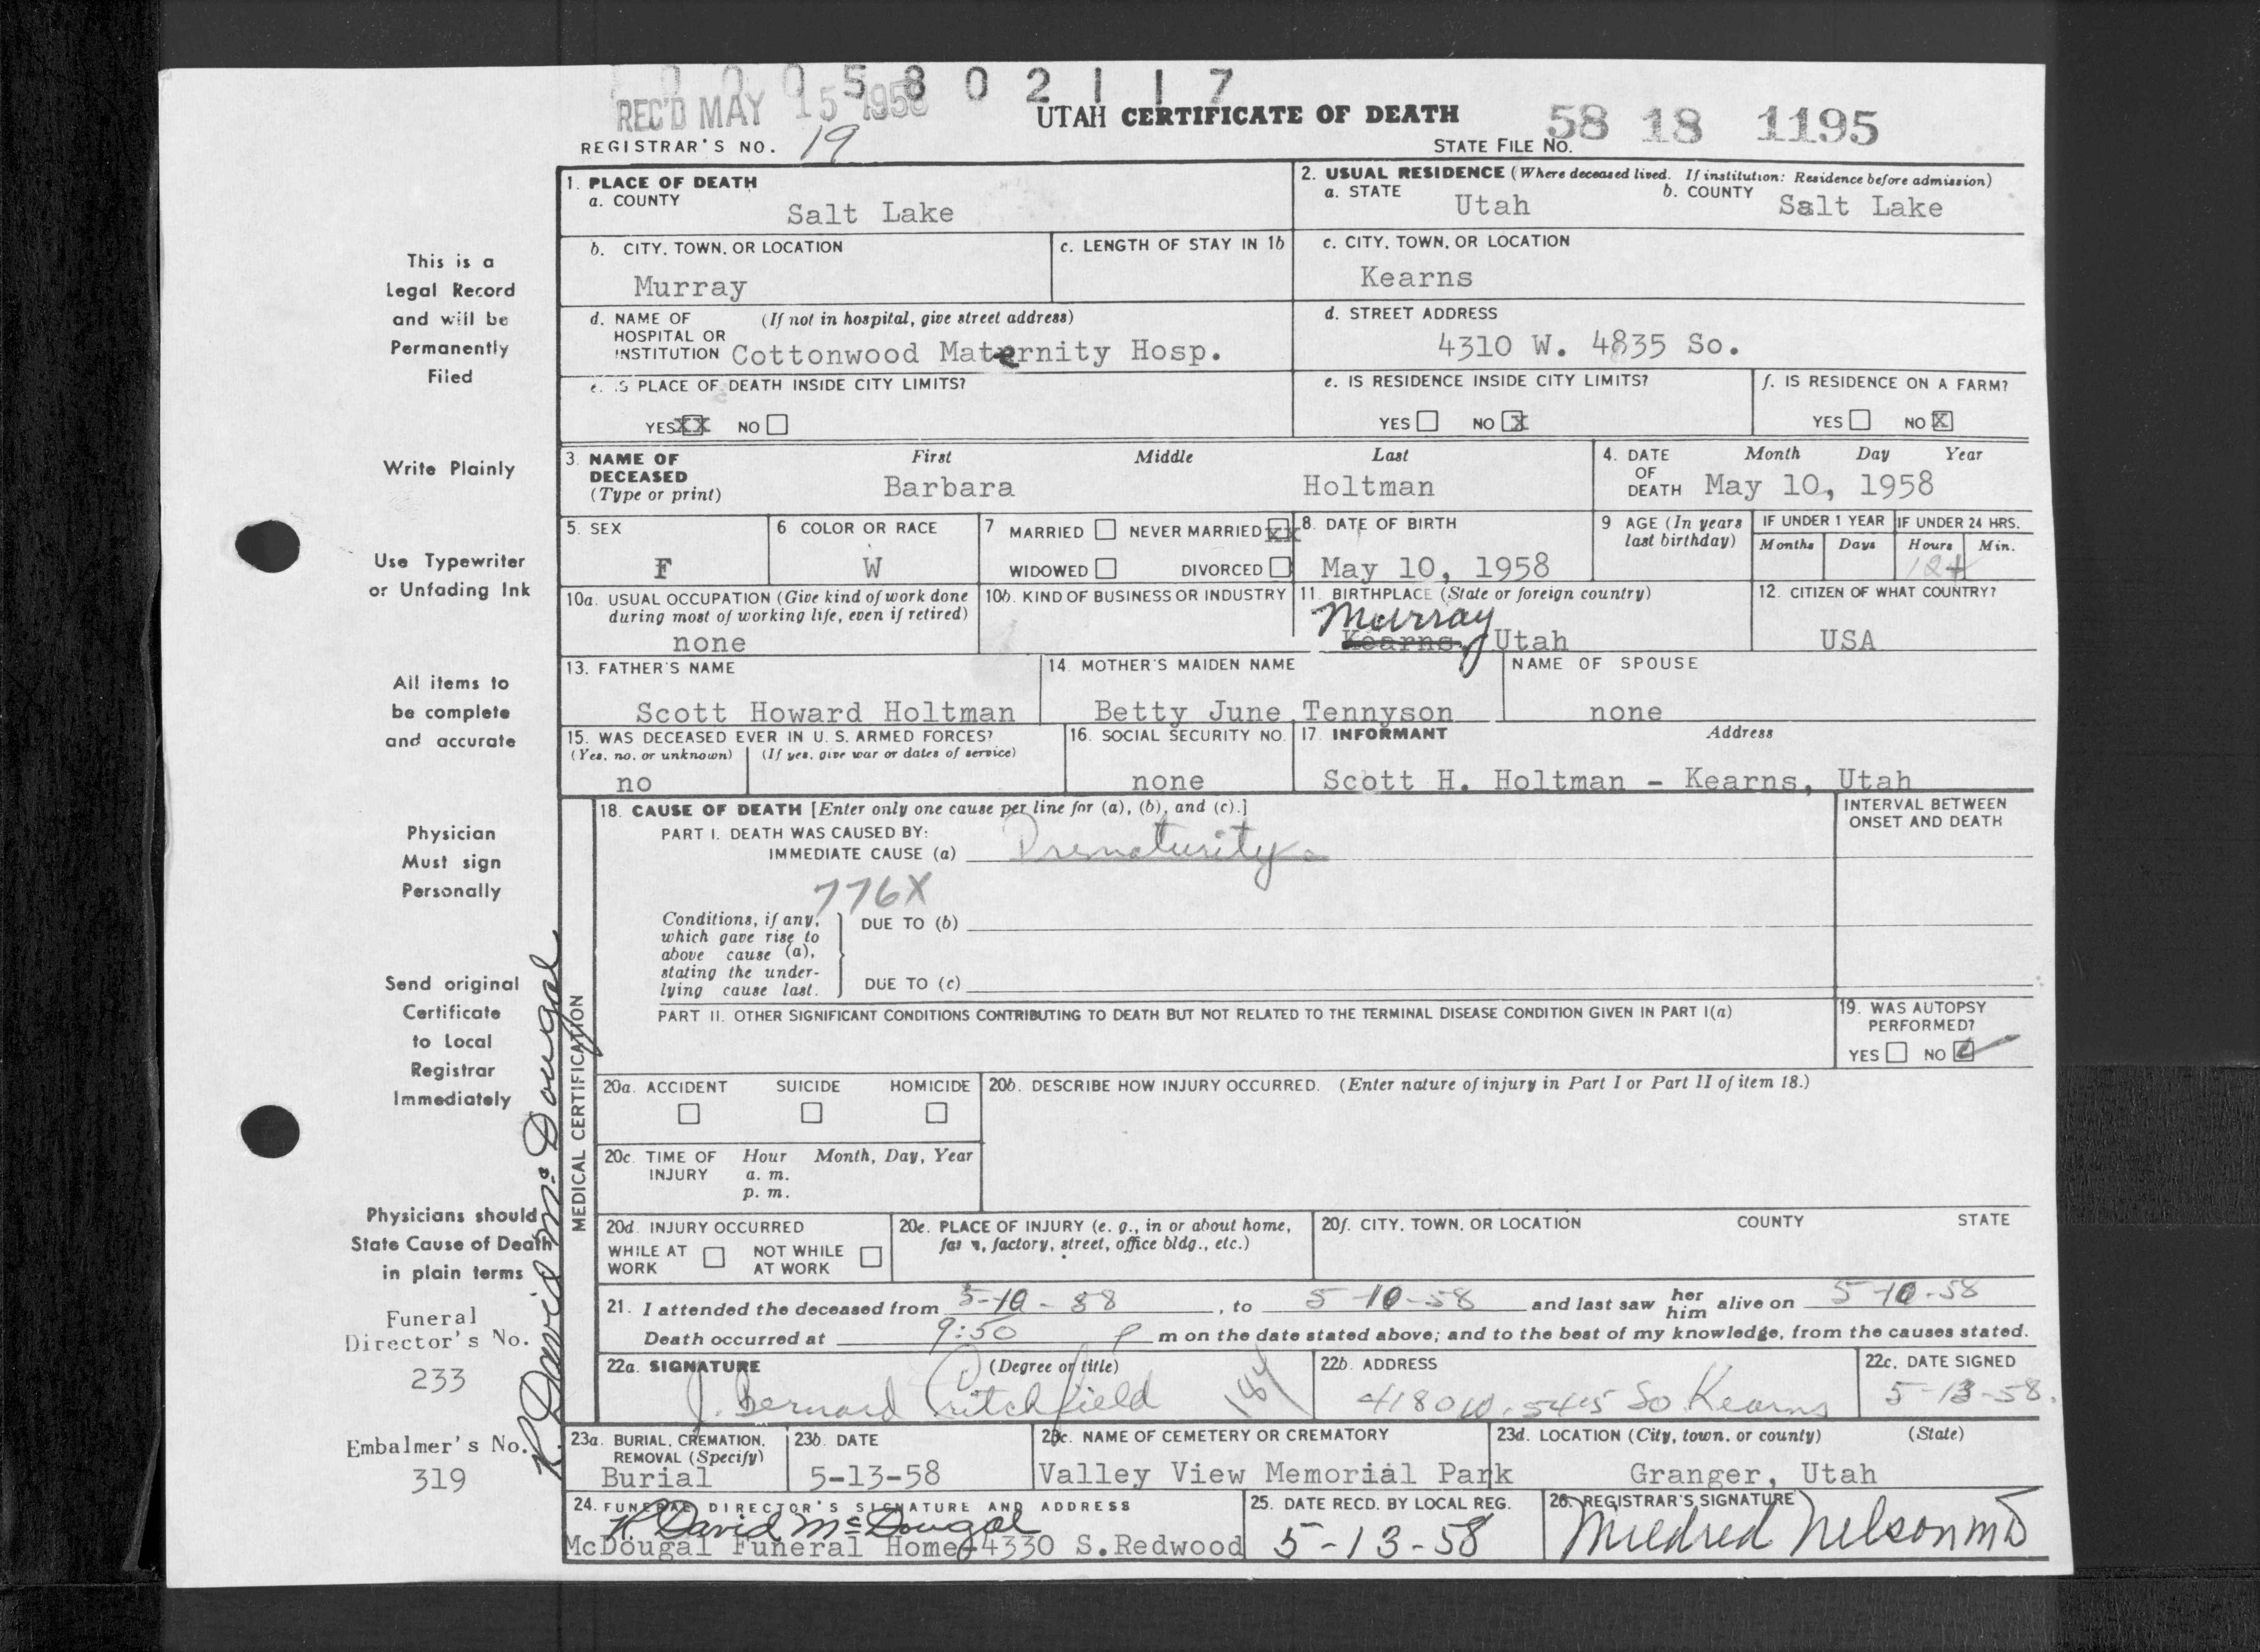 0 0 0 5 8 0 2 1 1 7
REC'D MAY 15 1958
UTAH CERTIFICATE OF DEATH
REGISTRAR'S NO. 19
STATE FILE NO. 58 18 1195
1. PLACE OF DEATH
a. COUNTY
Salt Lake
2. USUAL RESIDENCE (Where deceased lived. If institution: Residence before admission)
a. STATE Utah b. COUNTY Salt Lake
b. CITY, TOWN, OR LOCATION
Murray
c. LENGTH OF STAY IN 1b
c. CITY, TOWN, OR LOCATION
Kearns
d. NAME OF (If not in hospital, give street address)
HOSPITAL OR
INSTITUTION Cottonwood Maternity Hosp.
d. STREET ADDRESS
4310 W. 4835 So.
e. IS PLACE OF DEATH INSIDE CITY LIMITS?
YES XX NO
e. IS RESIDENCE INSIDE CITY LIMITS?
YES NO X
f. IS RESIDENCE ON A FARM?
YES NO X
3. NAME OF DECEASED (Type or print)
First Middle Last
Barbara Holtman
4. DATE OF DEATH
Month Day Year
May 10, 1958
5. SEX
F
6 COLOR OR RACE
W
7 MARRIED NEVER MARRIED XX
WIDOWED DIVORCED
8. DATE OF BIRTH
May 10, 1958
9 AGE (In years
last birthday)
IF UNDER 1 YEAR
Months Days
IF UNDER 24 HRS.
Hours Min.
10a. USUAL OCCUPATION (Give kind of work done
during most of working life, even if retired)
none
10b. KIND OF BUSINESS OR INDUSTRY
11. BIRTHPLACE (State or foreign country)
Murray
Kearns, Utah
12. CITIZEN OF WHAT COUNTRY?
USA
13. FATHER'S NAME
Scott Howard Holtman
14. MOTHER'S MAIDEN NAME
Betty June Tennyson
NAME OF SPOUSE
none
15. WAS DECEASED EVER IN U. S. ARMED FORCES?
(Yes, no, or unknown) (If yes, give war or dates of service)
no
16. SOCIAL SECURITY NO.
none
17. INFORMANT Address
Scott H. Holtman - Kearns, Utah
MEDICAL CERTIFICATION
18. CAUSE OF DEATH [Enter only one cause per line for (a), (b), and (c).]
PART I. DEATH WAS CAUSED BY:
IMMEDIATE CAUSE (a) Prematurity
776X
INTERVAL BETWEEN
ONSET AND DEATH
Conditions, if any,
which gave rise to
above cause (a),
stating the under-
lying cause last.
DUE TO (b)
DUE TO (c)
PART II. OTHER SIGNIFICANT CONDITIONS CONTRIBUTING TO DEATH BUT NOT RELATED TO THE TERMINAL DISEASE CONDITION GIVEN IN PART I(a)
19. WAS AUTOPSY
PERFORMED?
YES NO
20a. ACCIDENT SUICIDE HOMICIDE
20b. DESCRIBE HOW INJURY OCCURRED. (Enter nature of injury in Part I or Part II of item 18.)
20c. TIME OF INJURY
Hour Month, Day, Year
a. m.
p. m.
20d. INJURY OCCURRED
WHILE AT WORK NOT WHILE AT WORK
20e. PLACE OF INJURY (e. g., in or about home,
farm, factory, street, office bldg., etc.)
20f. CITY, TOWN, OR LOCATION COUNTY STATE
21. I attended the deceased from 5-10-58, to 5-10-58 and last saw her him alive on 5-10-58
Death occurred at 9:50 P m on the date stated above; and to the best of my knowledge, from the causes stated.
22a. SIGNATURE (Degree or title)
J. Bernard Critchfield
22b. ADDRESS
4180 W. 5415 So Kearns
22c. DATE SIGNED
5-13-58.
23a. BURIAL, CREMATION,
REMOVAL (Specify)
Burial
23b. DATE
5-13-58
23c. NAME OF CEMETERY OR CREMATORY
Valley View Memorial Park
23d. LOCATION (City, town, or county) (State)
Granger, Utah
24. FUNERAL DIRECTOR'S SIGNATURE AND ADDRESS
R David McDougal
McDougal Funeral Home-4330 S.Redwood
25. DATE RECD. BY LOCAL REG.
5-13-58
26. REGISTRAR'S SIGNATURE
Mildred Nelson MD
This is a
Legal Record
and will be
Permanently
Filed
Write Plainly
Use Typewriter
or Unfading Ink
All items to
be complete
and accurate
Physician
Must sign
Personally
Send original
Certificate
to Local
Registrar
Immediately
Physicians should
State Cause of Death
in plain terms
Funeral
Director's No.
233
Embalmer's No.
319
R. David McDougal